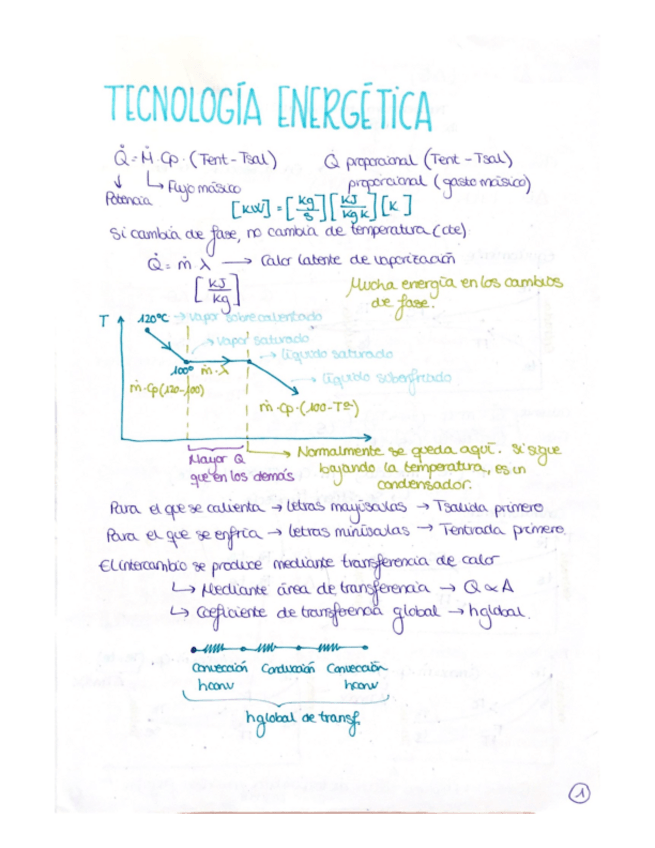 TECNOLOGÍA ENERGÉTICA
Q̇ = Ṁ · Cp · (Tent - Tsal)    Q̇ proporcional (Tent - Tsal)
↓ ↳ Flujo másico    proporcional (gasto másico)
Potencia    [KW] = [Kg/s] [KJ/Kg K] [K]
Si cambia de fase, no cambia de temperatura (cte)
Q̇ = ṁ λ → Calor latente de vaporización
[KJ/Kg]    Mucha energía en los cambios
de fase.
T    120ºC → vapor sobrecalentado
→ vapor saturado
→ líquido saturado
100º ṁ·λ    → líquido subenfriado
ṁ·Cp(120-100)
ṁ·Cp·(100-Tª)
Mayor Q    → Normalmente se queda aquí. Si sigue
que en los demás    bajando la temperatura, es un
condensador.
Para el que se calienta → letras mayúsculas → Tsalida primero
Para el que se enfría → letras minúsculas → Tentrada primero.
El intercambio se produce mediante transferencia de calor
↳ Mediante área de transferencia → Q ∝ A
↳ Coeficiente de transferencia global → hglobal.
Convección Conducción Convección
hconv    hconv
hglobal de transf.
1